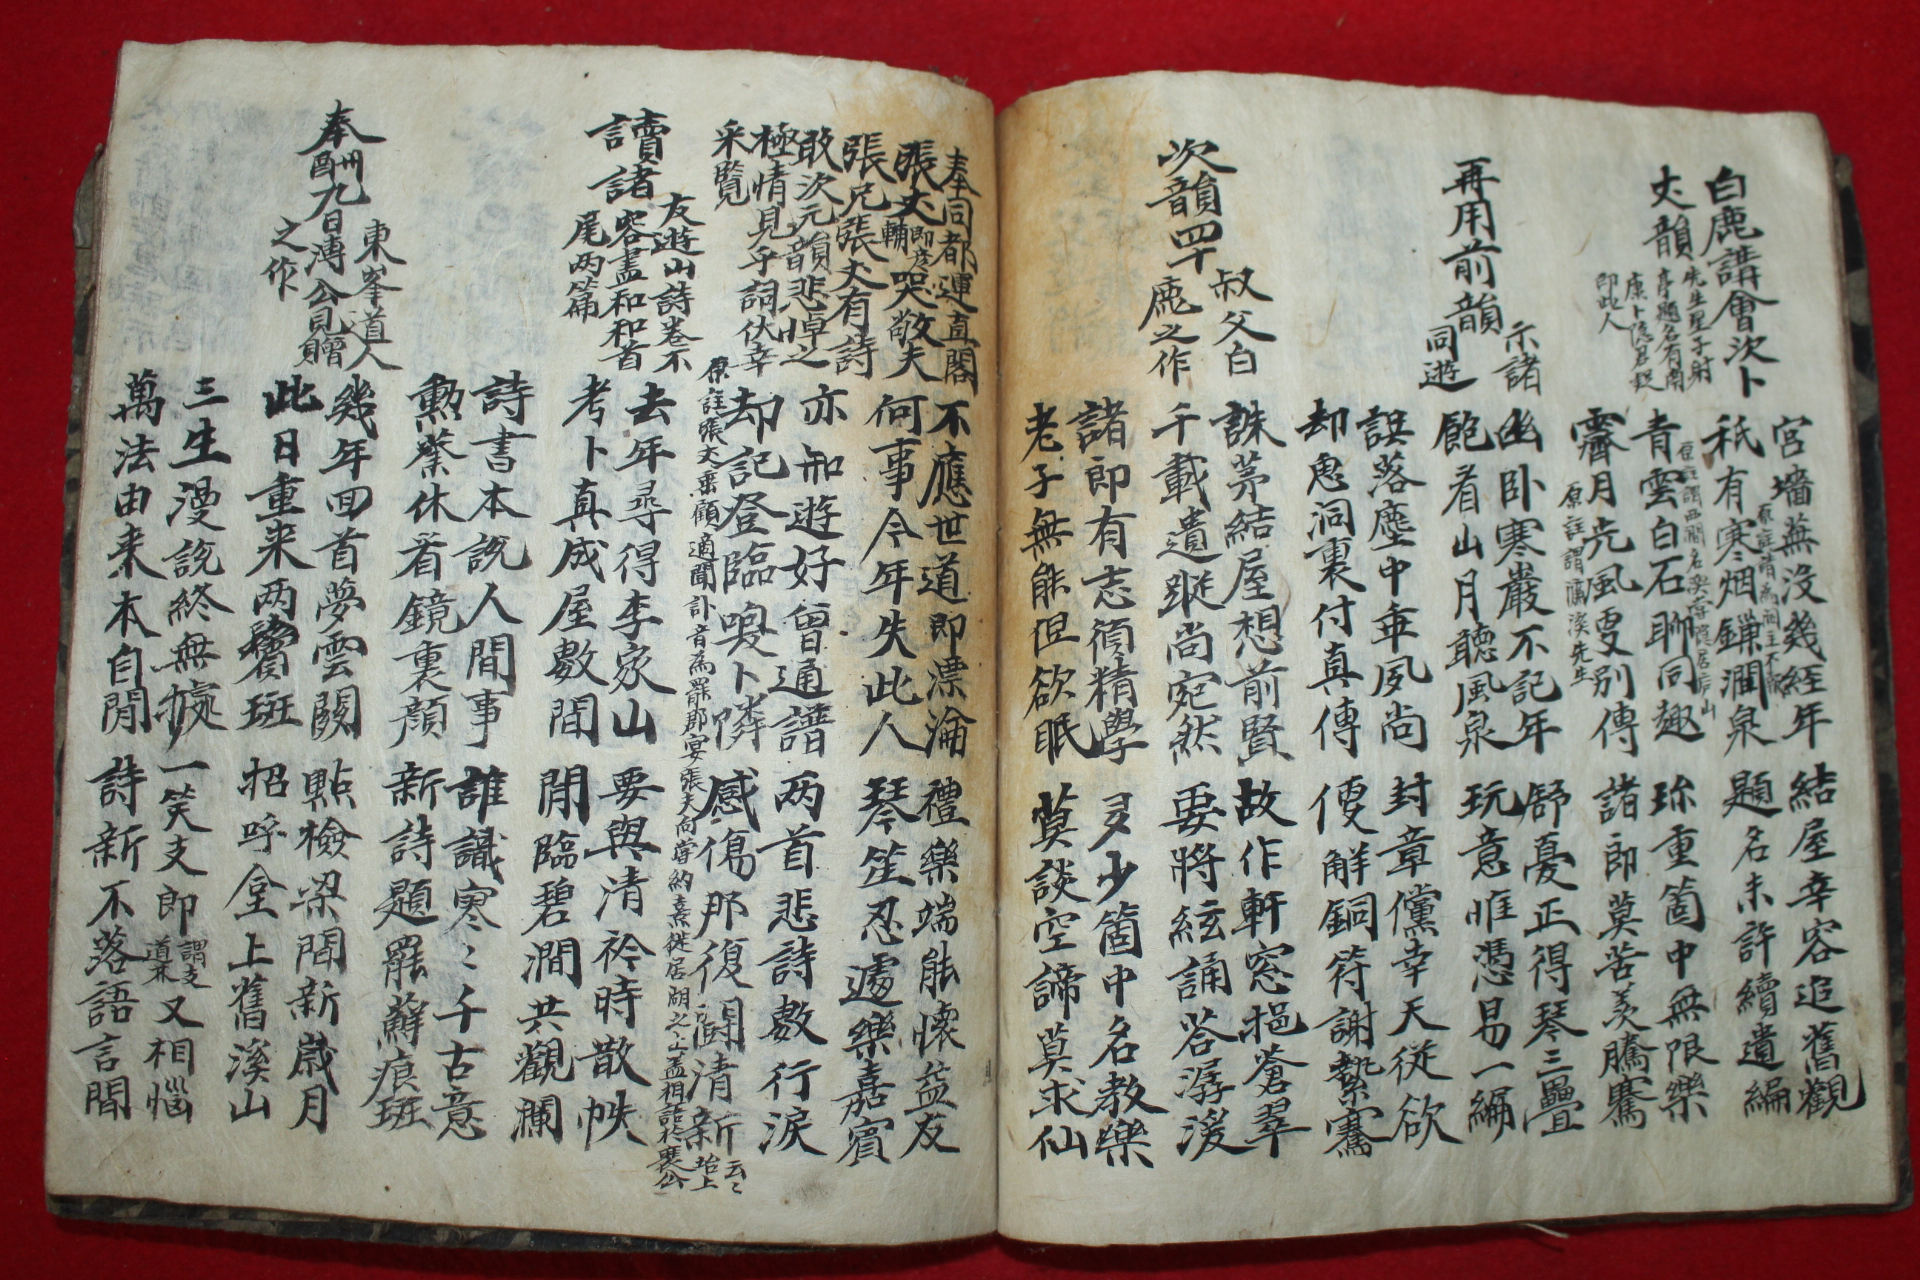 白鹿講會次卜
丈韻
先生星子射
亭題名有南
康卜隱君錠
即此人
宮墻蕪沒幾經年
結屋幸容追舊觀
秪有寒烟鏁澗泉
題名未許續遺編
青雲白石聊同趣
珎重箇中無限樂
霽月光風更別傳
諸郎莫苦羡騰騫
原註謂濂溪先生
再用前韻
示諸
同遊
幽卧寒巖不記年
舒憂正得琴三疊
飽看山月聽風泉
玩意惟憑易一編
誤落塵中乖夙尚
封章儻幸天從欲
却思洞裏付真傳
便解銅符謝縶騫
次韻四十
叔父白
鹿之作
誅茅結屋想前賢
故作軒窓挹蒼翠
千載遺蹤尚宛然
要將絃誦答潺湲
諸郎有志須精學
多少箇中名教樂
老子無能但欲眠
莫談空諦莫求仙
奉同都運直閣
張丈即彦輔哭敬夫
張兄張丈有詩
敢次元韻悲悼之
極情見乎詞伏幸
采覽
不應世道即漂淪
禮樂端能懷益友
何事今年失此人
琴笙忍遽樂嘉賓
亦知遊好曾通譜
两首悲詩數行淚
却記登臨喚卜隣
感傷那復鬪清新
原註張丈垂顧適聞訃音為罷郡宴張夫向嘗約熹徙居湖之上盖相詒於裴公
㙜上
云云
讀諸
友遊山詩卷不
容盡和和首
尾两篇
去年尋得李家山
要與清衿時散帙
考卜真成屋數間
閒臨碧澗共觀瀾
詩書本說人間事
誰識寒寒千古意
勲業休看鏡裏顔
新詩題罷蘚痕斑
奉酬九日
東峯道人
溥公見贈
之作
幾年回首夢雲關
㸃檢梁間新歲月
此日重来两鬢斑
招呼㙜上舊溪山
三生漫說終無據
一笑支郎又相惱
謂支
道林
萬法由来本自閒
詩新不落語言間